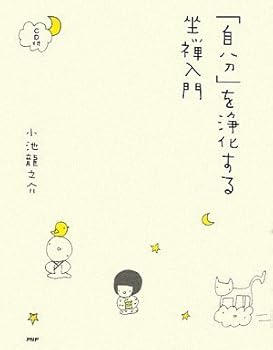 「自分」を浄化する
坐禅入門
小池龍之介
CD付
PHP